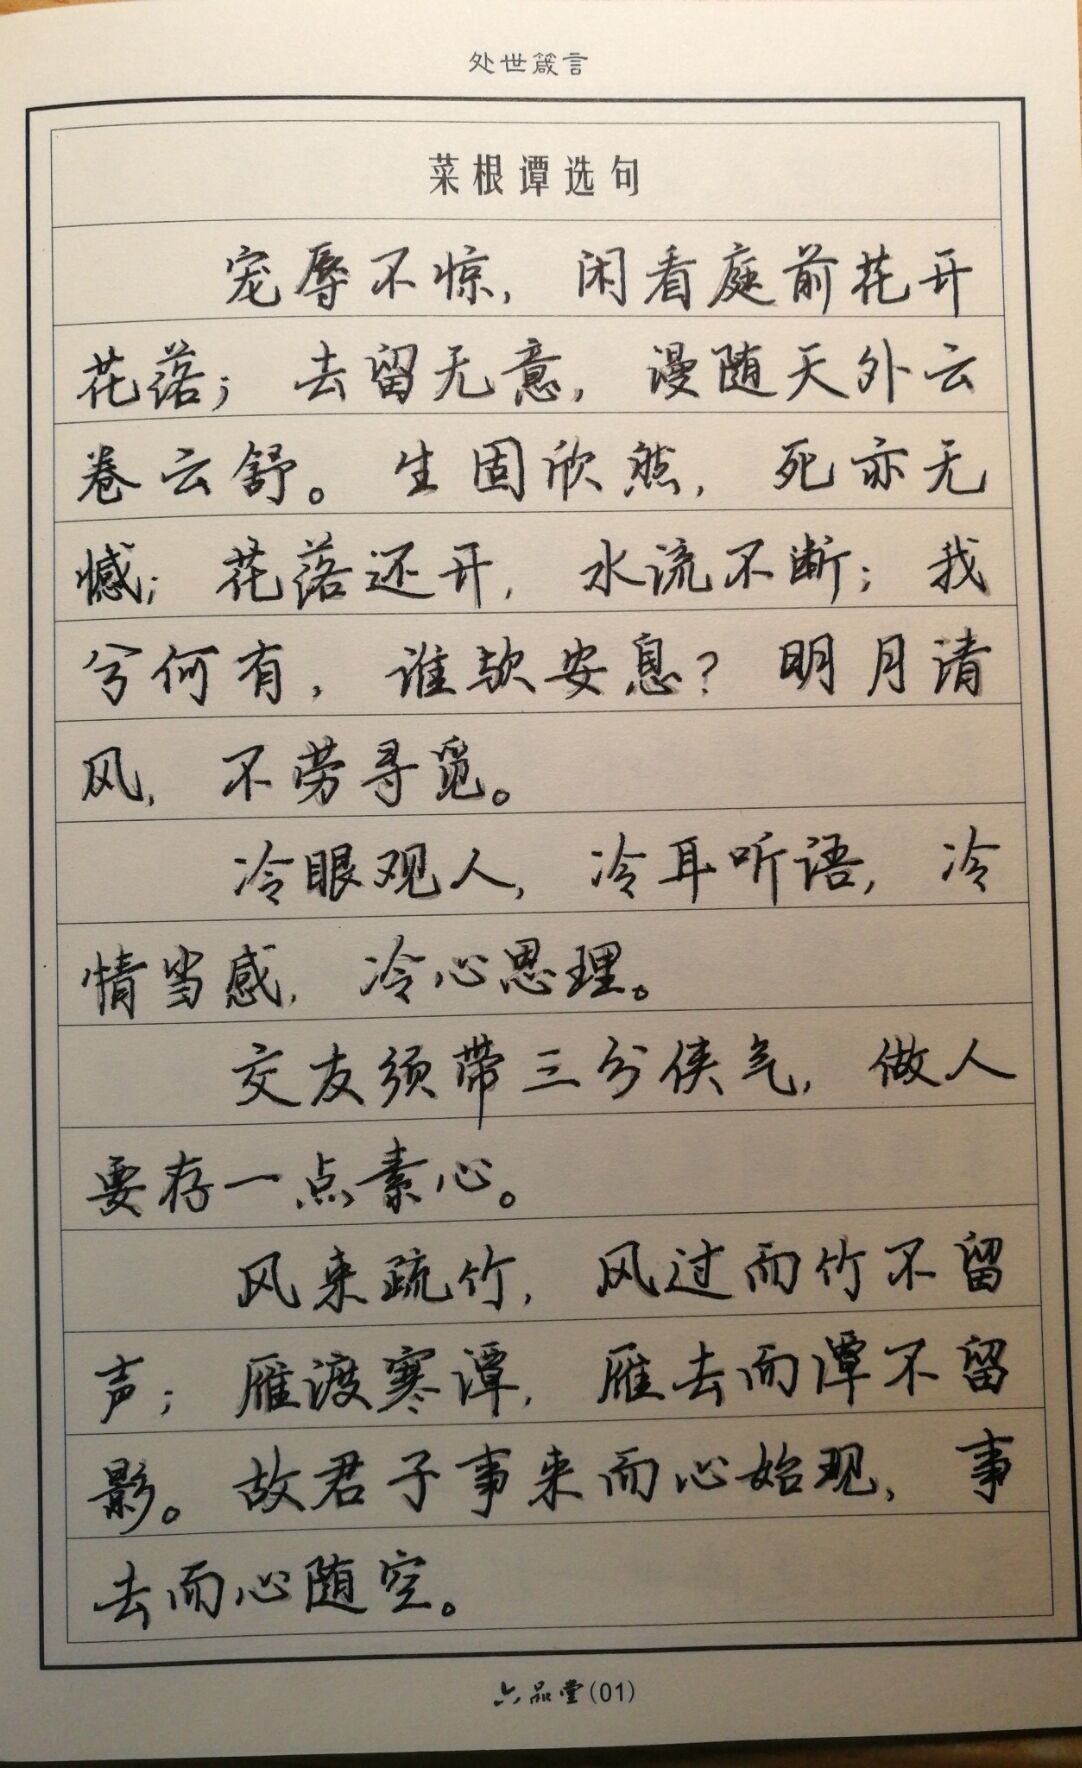 处世箴言
菜根谭选句
宠辱不惊，闲看庭前花开
花落；去留无意，漫随天外云
卷云舒。生固欣然，死亦无
憾；花落还开，水流不断；我
兮何有，谁欤安息？明月清
风，不劳寻觅。
冷眼观人，冷耳听语，冷
情当感，冷心思理。
交友须带三分侠气，做人
要存一点素心。
风来疏竹，风过而竹不留
声；雁渡寒潭，雁去而潭不留
影。故君子事来而心始现，事
去而心随空。
六品堂(01)